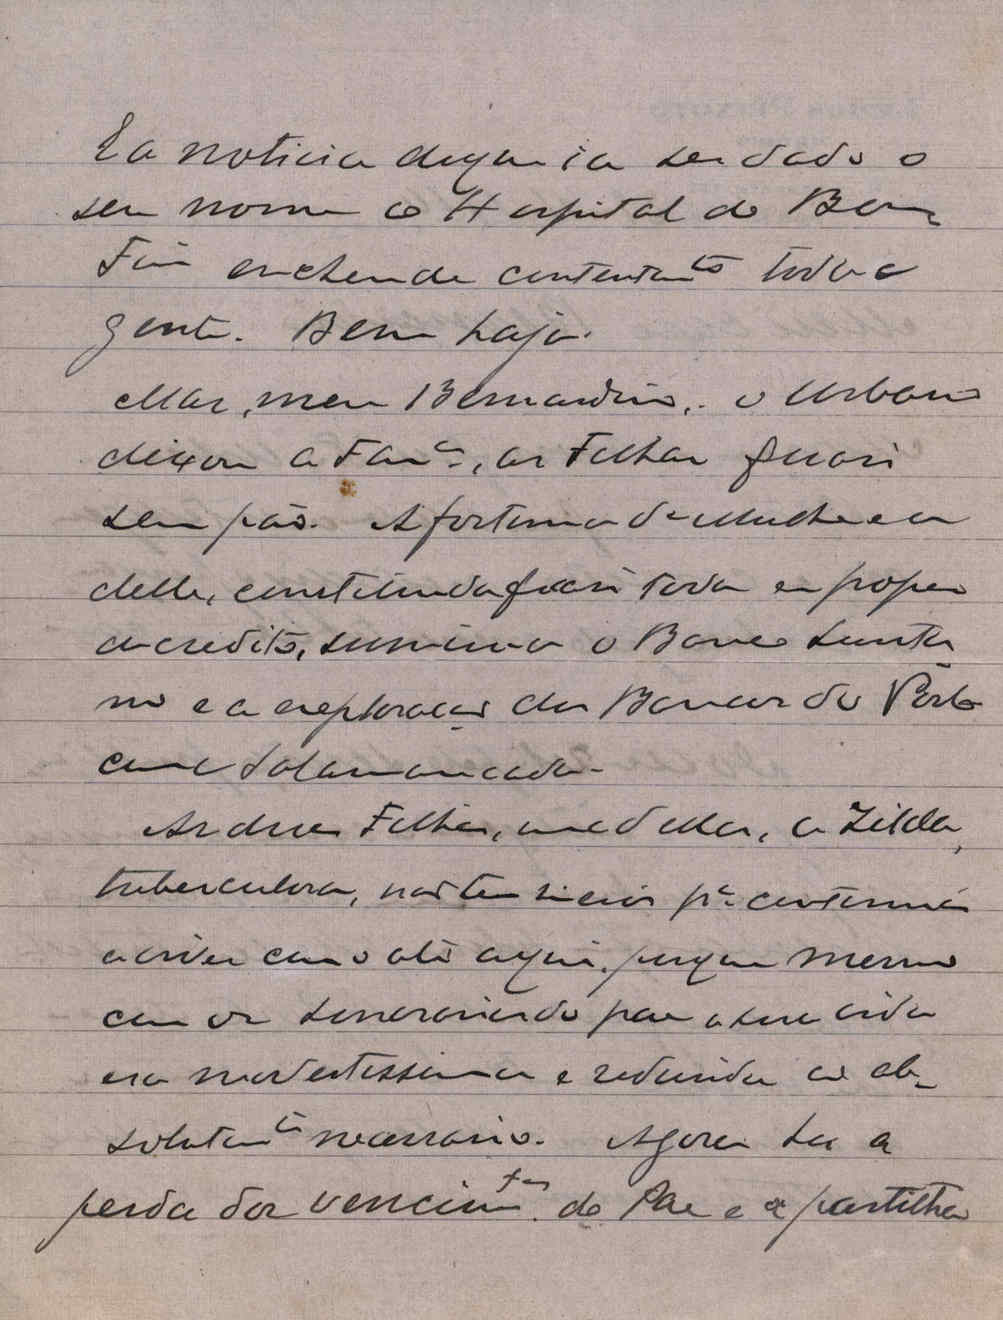 E a noticia de que ia ser dado o
seu nome ao Hospital do Bom
Fim encheu de contentamto toda a
gente. Bem haja.
Mas, meu Bernardino, o Urbano
deixou a Famª, as Filhas quasi
sem pão. A fortuna da mulher e a
delle, constituida quasi toda em papeis
de credito, sumiu-a o Banco Lusita
no e a exploração dos Bancos do Pôrto
com a Salamancada.
As duas Filhas, uma dellas, a Zilda,
tuberculosa, não tem meios pª continuar
a viver como até aqui, porque mesmo
com os honorarios do pae a sua vida
era modestissima e reduzida ao ab-
solutamte necessario. Agora ha a
perda dos vencimtos do Pae e a partilha